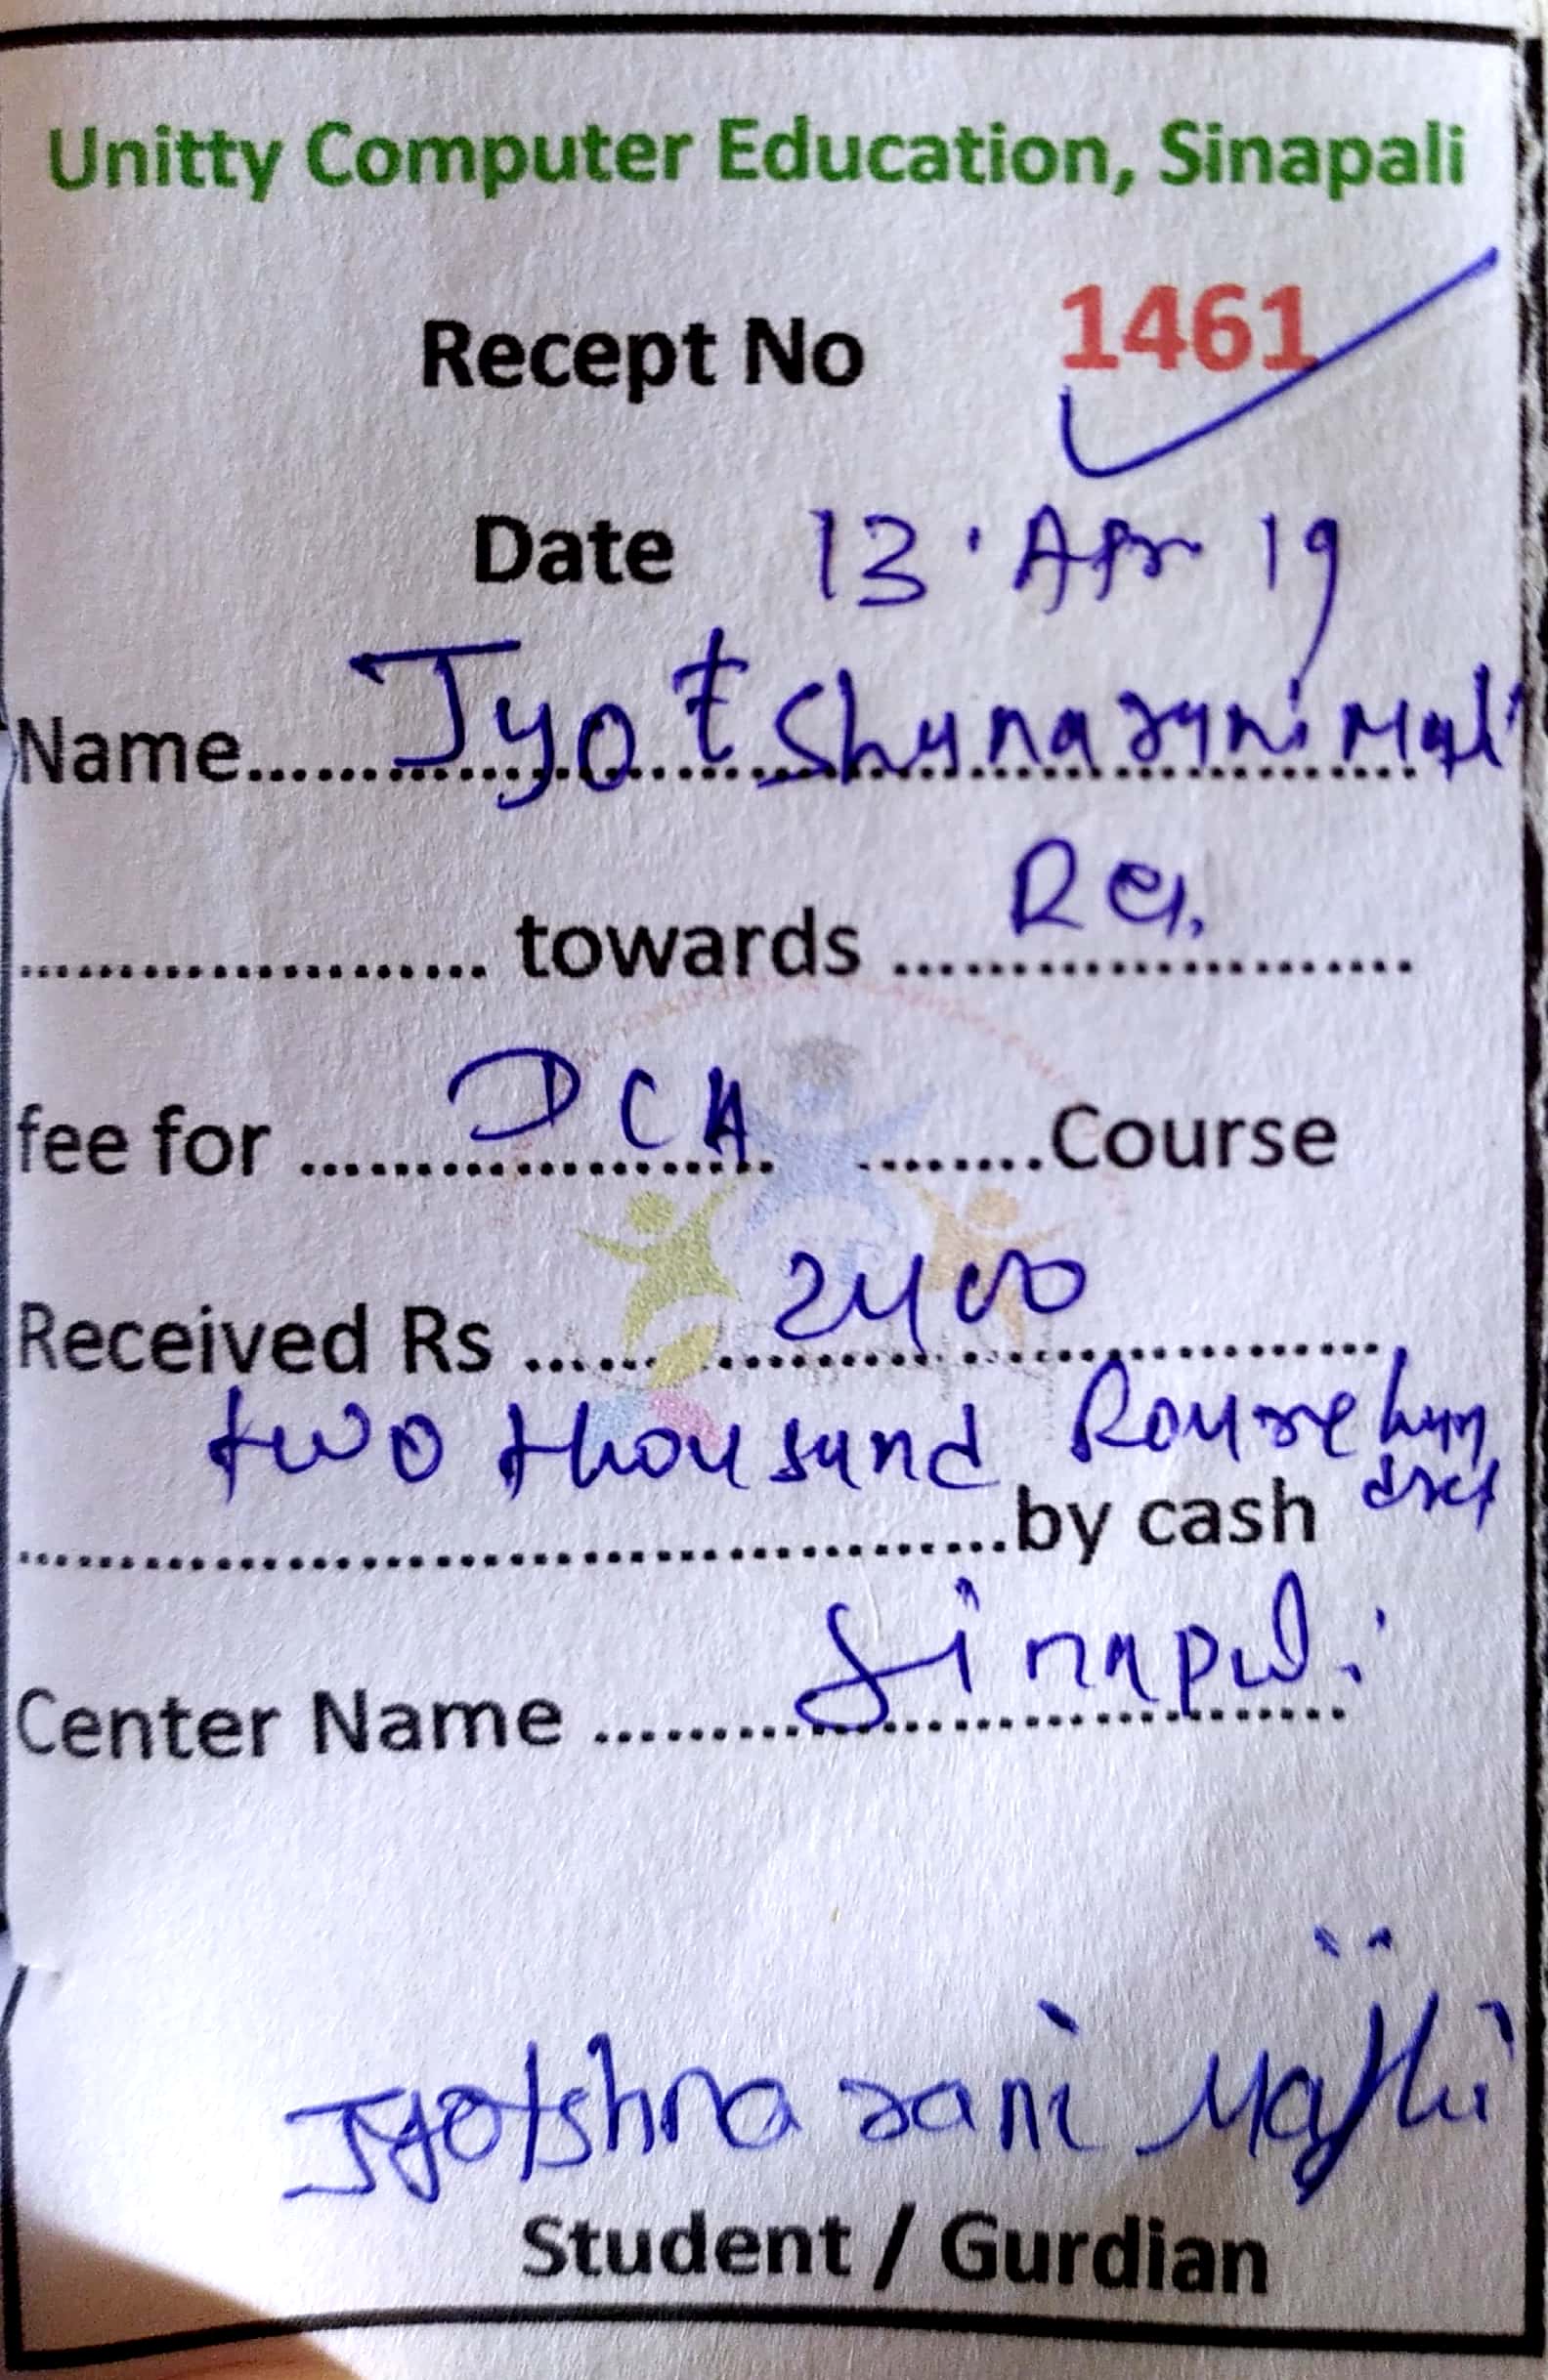 Unitty Computer Education, Sinapali
Recept No 1461
Date 13 Apr 19
Name.......... Jyotshuna rani Maji
.......... towards .......... Re.
fee for .......... DCA ..........Course
Received Rs .......... 2400
two thousand Foure hun
dred
..........by cash
Center Name .......... Sinapali
Jyotshna rani Majhi
Student / Gurdian